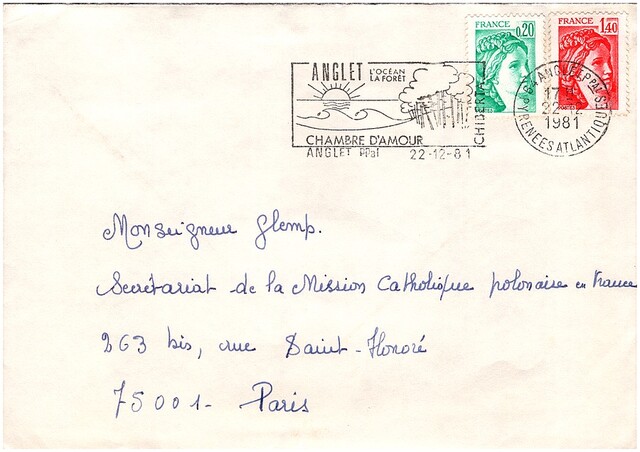 FRANCE 0,20
FRANCE 1,40
ANGLET L'OCÉAN
LA FORÊT
CHIBERTA
CHAMBRE D'AMOUR
ANGLET PPAL 22-12-81
64 ANGLET PPAL
17 H
22-12
1981
PYRENEES ATLANTIQUES
Monseigneur Glemp.
Secrétariat de la Mission Catholique polonaise en France
263 bis, rue Saint-Honoré
75001- Paris